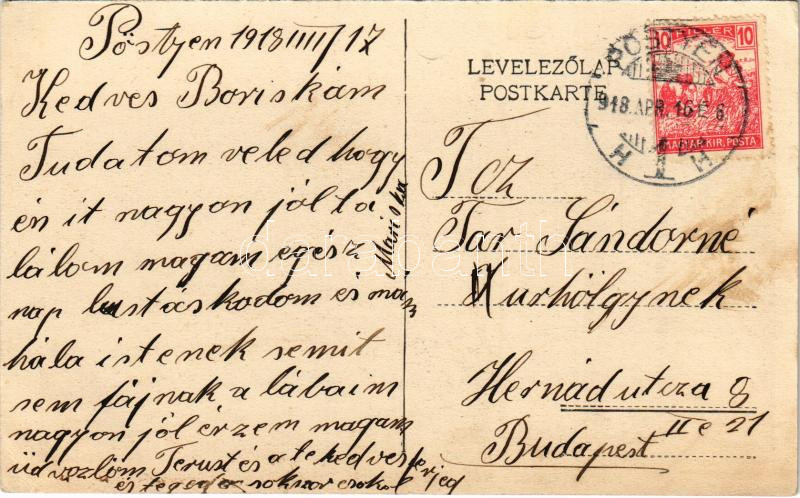 Pöstyen 1918 IIII/17
Kedves Boriskám
Tudatom veled hogy
én it nagyon jól ta
lálom magam egesz
nap lustáskodom és mam
hála istenek semit
sem fájnak a lábaim
nagyon jól érzem magam
üdvözlöm Terust és a te kedves
férjed
és tegedet sokszor csokol
Mariska
LEVELEZŐLAP
POSTKARTE
PÖSTYÉN
918.APR.16
10 FILLÉR 10
MAGYAR KIR. POSTA
Tcz
Tar Sándorné
Urhölgynek
Hernád utcza 8
IIe 21
Budapest
darabanth